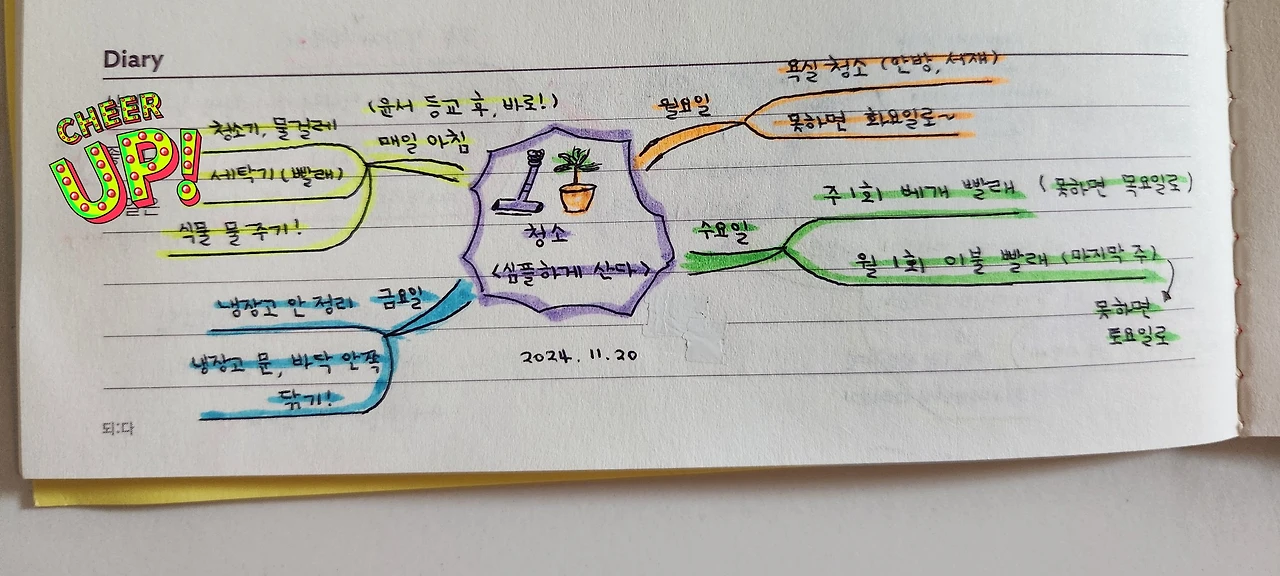 Diary
CHEER
UP!
(윤서 등교 후, 바로!)
매일 아침
청소기, 물걸레
세탁기 (빨래)
식물 물 주기!
청소
<심플하게 산다>
월요일
욕실 청소 (안방, 서재)
못하면 화요일로~
수요일
주 1회 베개 빨래 (못하면 목요일로)
월 1회 이불 빨래 (마지막 주)
못하면
토요일로
금요일
냉장고 안 정리
냉장고 문, 바닥 안쪽
닦기!
2024. 11. 20
되:다